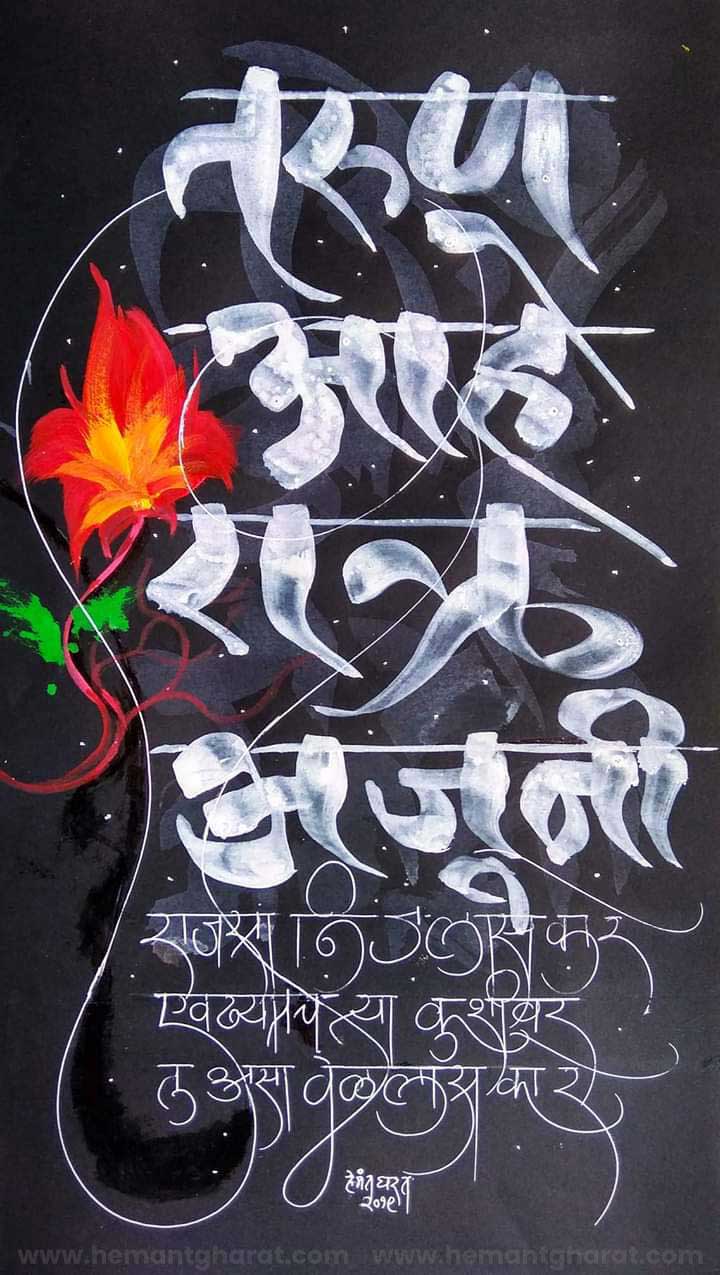 तरुण
आहे
रात्र
अजूनी
राजसा निजलास का रे
एवढ्यातच त्या कुशीवर
तु असा वळलास का रे
हेमंत घरत
२०१९
www.hemantgharat.com www.hemantgharat.com